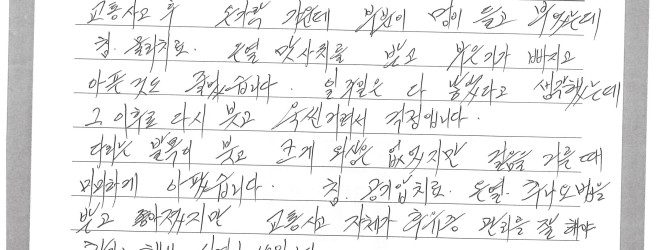 교통사고 후 손가락 가운데 부분이 멍이 들고 부었는데
침. 물리치료. 온열 맛사지를 받고 부은기가 빠지고
아픈것도 줄었습니다. 일주일은 다 나았다고 생각했는데
그 이후로 다시 붓고 욱씬거려서 걱정입니다.
다리는 발목이 붓고 크게 외상은 없었지만 걸음을 걸을때
미미하게 아팠습니다. 침. 공기압치료. 온열. 추나요법을
받고 좋아졌지만 교통사고 자체가 후유증 관리를 잘 해야